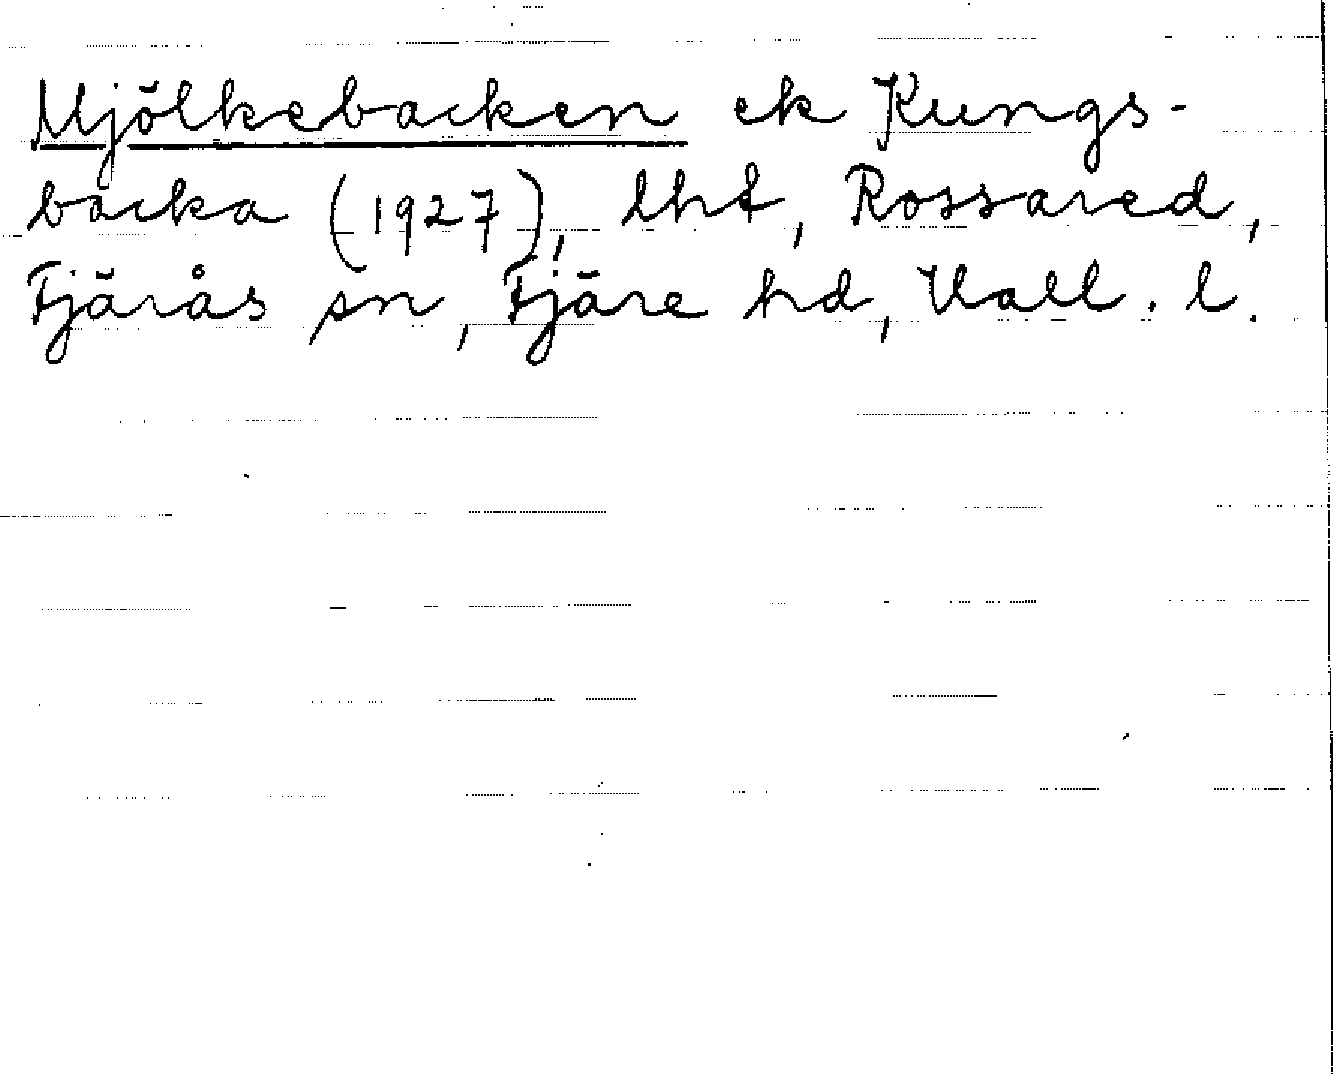 Mjölkebacken ek Kungs-
backa (1927), lht, Rossared,
Fjärås sn, Fjäre hd, Hall. l.